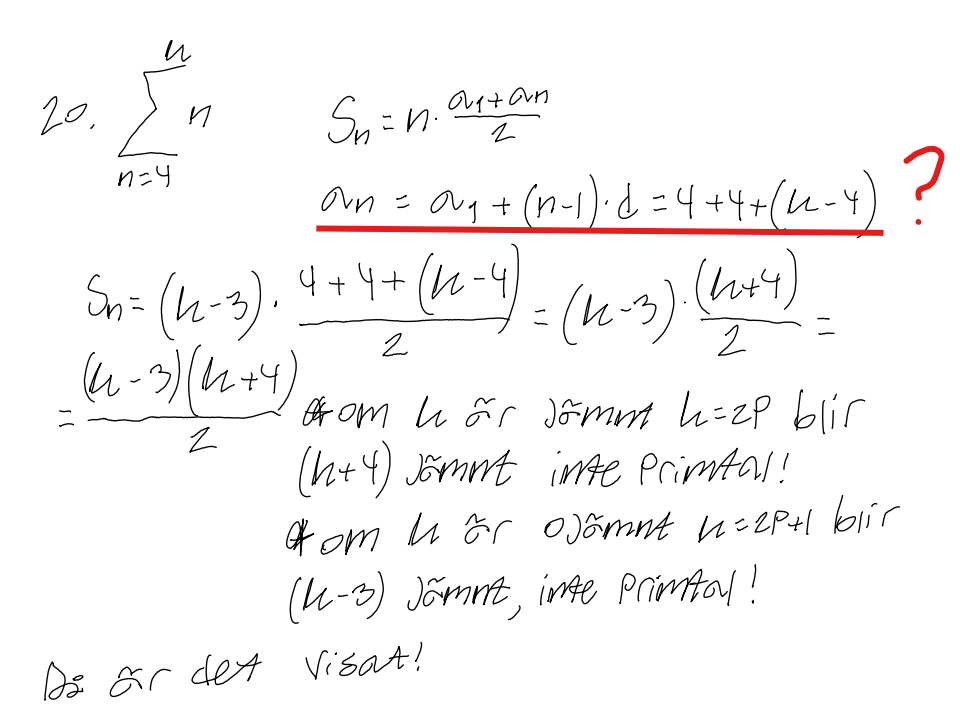 20. \sum_{n=4}^{k} n
S_n = n \cdot \frac{a_1 + a_n}{2}
a_n = a_1 + (n-1) \cdot d = 4 + 4 + (k-4) ?
S_n = (k-3) \cdot \frac{4+4+(k-4)}{2} = (k-3) \cdot \frac{(k+4)}{2} =
= \frac{(k-3)(k+4)}{2}
om k är jämnt k=2p blir
(k+4) jämnt inte primtal!
om k är ojämnt k=2p+1 blir
(k-3) jämnt, inte primtal!
Då är det visat!